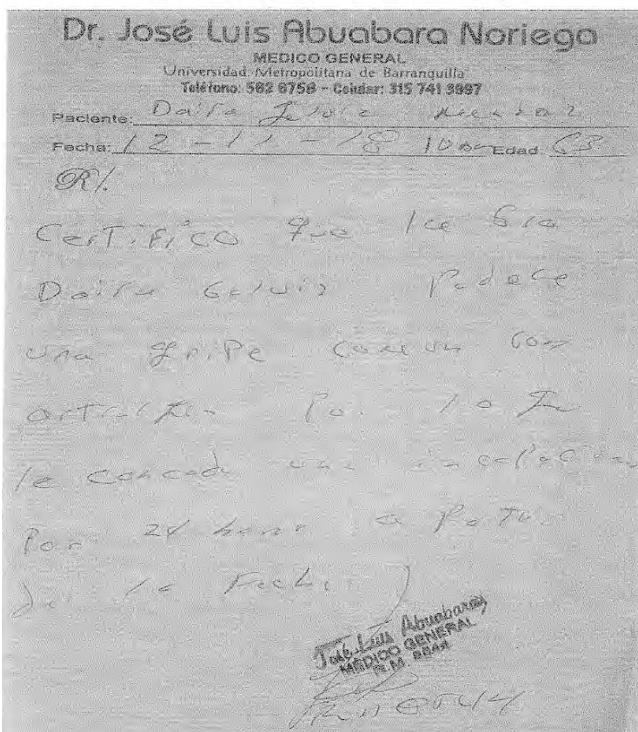 Dr. José Luis Abuabara Noriega
MEDICO GENERAL
Universidad Metropolitana de Barranquilla
Teléfono: 562 6758 - Celular: 315 741 3997
Paciente: Daira
Fecha: 12 - 11 - 18 10 am Edad: 63
R/.
Certifico que la Sra
Daira Geluis Padece
una gripe comun con
artralgia Por lo
le concedo una incapacidad
Por 24 horas a Partir
de la Fecha
José Luis Abuabara
MÉDICO GENERAL
R.M